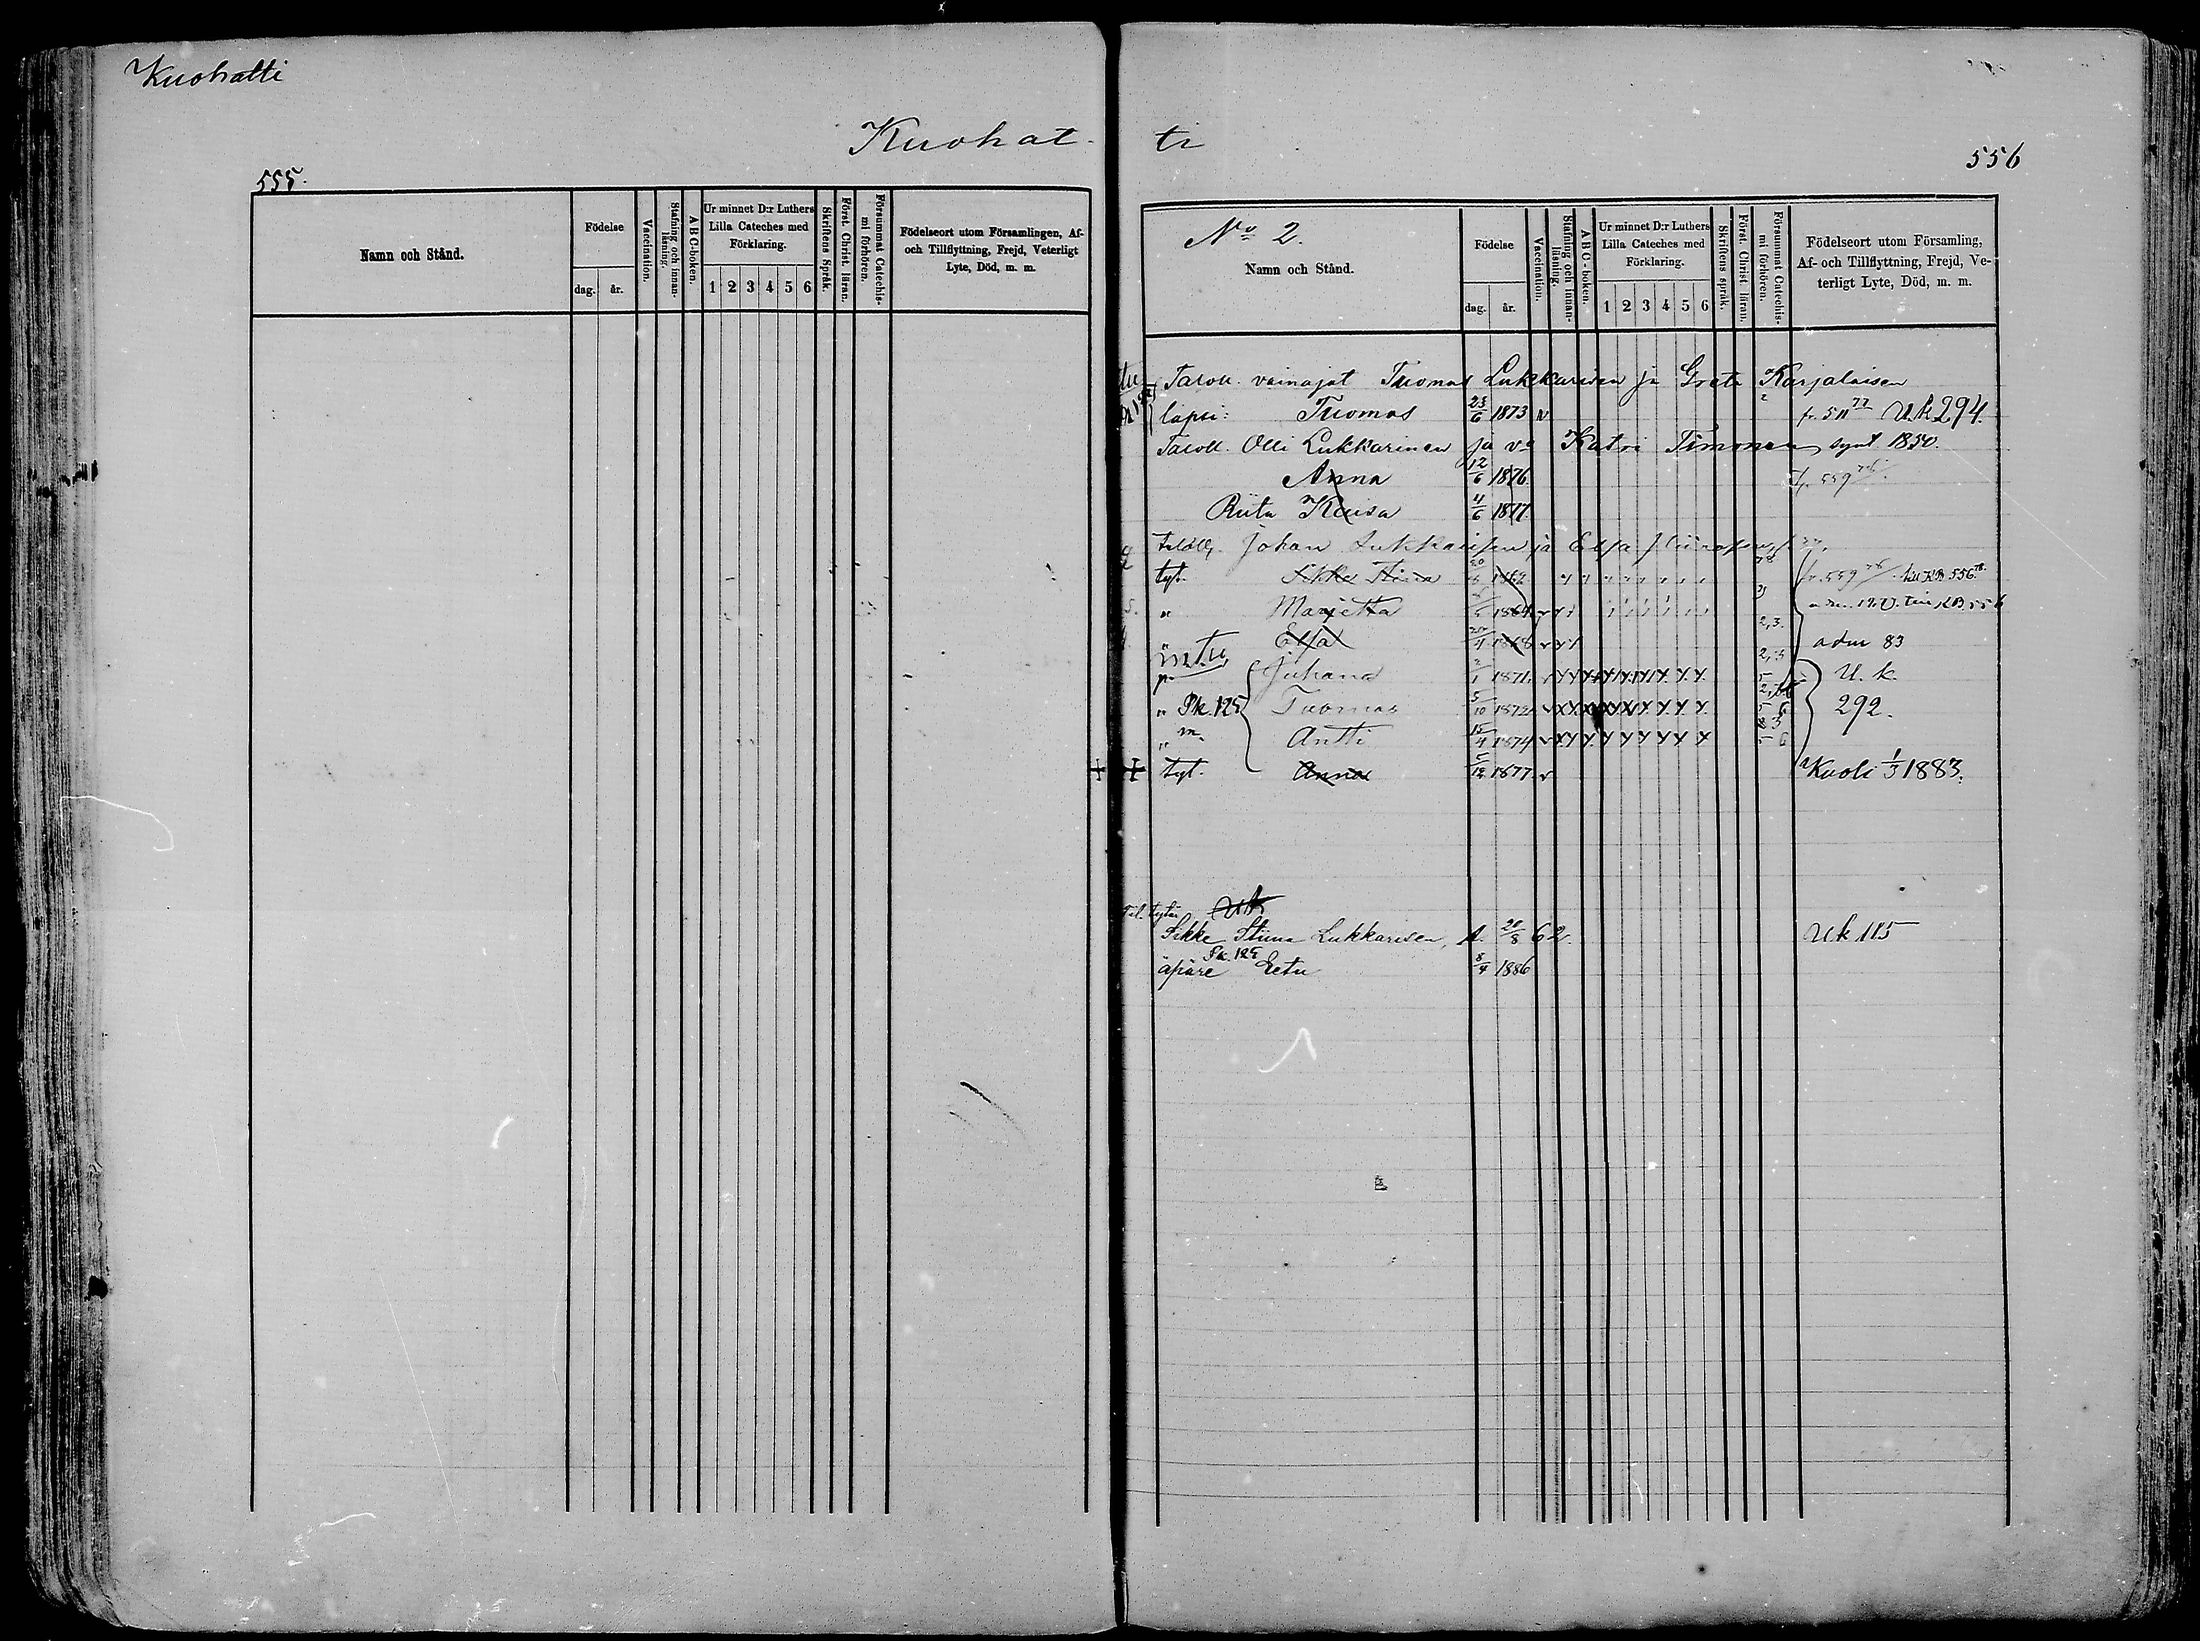 Kuohatti
Kuohat-
555.
Namn och Stånd.
Födelse
dag. år.
Vaccination.
Stafning och innan-läsning.
ABC-boken.
Ur minnet D:r Luthers Lilla Cateches med Förklaring.
1 2 3 4 5 6
Skriftens Språk.
Först. Christ. läran.
Försummat Catechis-mi förhören.
Födelseort utom Församlingen, Af-
och Tillflyttning, Frejd, Veterligt
Lyte, Död, m. m.
ti
556
No 2.
Namn och Stånd.
Födelse
dag. år.
Vaccination.
Stafning och innan-läsning.
ABC-boken.
Ur minnet D:r Luthers
Lilla Cateches med
Förklaring.
1 2 3 4 5 6
Skriftens språk.
Först. Christ. läran.
Försummat Catechis-mi förhören.
Födelseort utom Församling,
Af- och Tillflyttning, Frejd, Ve-
terligt Lyte, Död, m. m.
Taloll. vainajat Tuomas Lukkarisen ja Greta Karjalaisen
lapsi: Tuomas 23/6 1873 U.k 294.
Taloll. Olli Lukkarinen ja vo Katri Timonen synt 1850.
Anna 12/6 1876. fr. 559
Riita Kaisa 4/6 1877.
Johan Lukkarisen ja Elsa
tyt. Sikke Stina 20/8 1862 fr. 559 till KB 556
" Marjetta 1864
" Elsa 1868 adm 83
p. Juhana 1871 U. k.
" Pk. 125 Tuomas 5/10 1872 292.
" Antti 15/4 1874
tyt. Anna 5/12 1877 Kuoli 1/3 1883.
tal. tytär uk
Sikke Stiina Lukkarisen, A. 20/8 62. Uk 115
Pk. 125
äpäre Eetu 8/4 1886